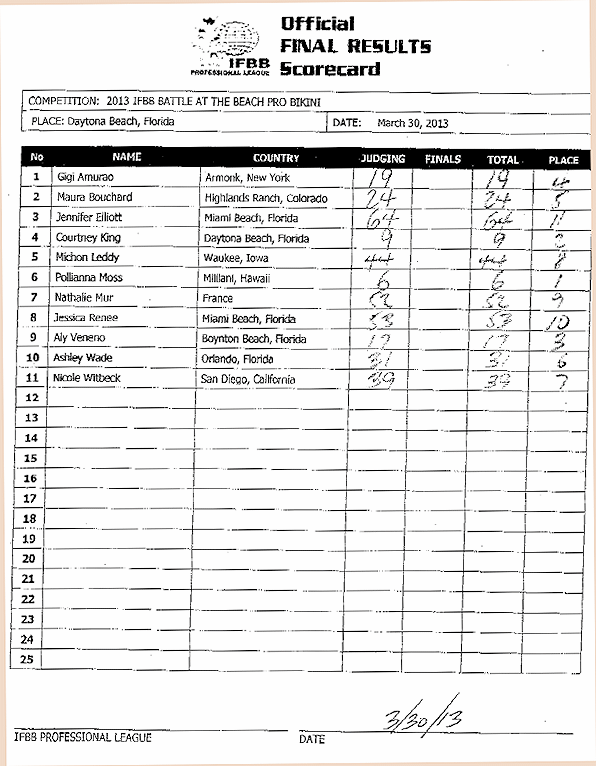 Official
FINAL RESULTS
Scorecard
IFBB
PROFESSIONAL LEAGUE
COMPETITION: 2013 IFBB BATTLE AT THE BEACH PRO BIKINI
PLACE: Daytona Beach, Florida DATE: March 30, 2013
No NAME COUNTRY JUDGING FINALS TOTAL PLACE
1 Gigi Amurao Armonk, New York 19 19 4
2 Maura Bouchard Highlands Ranch, Colorado 24 24 5
3 Jennifer Elliott Miami Beach, Florida 64 64 11
4 Courtney King Daytona Beach, Florida 9 9 2
5 Michon Leddy Waukee, Iowa 44 44 8
6 Pollianna Moss Mililani, Hawaii 6 6 1
7 Nathalie Mur France 52 52 9
8 Jessica Renee Miami Beach, Florida 53 53 10
9 Aly Veneno Boynton Beach, Florida 17 17 3
10 Ashley Wade Orlando, Florida 31 31 6
11 Nicole Witbeck San Diego, California 39 39 7
12
13
14
15
16
17
18
19
20
21
22
23
24
25
3/30/13
IFBB PROFESSIONAL LEAGUE DATE